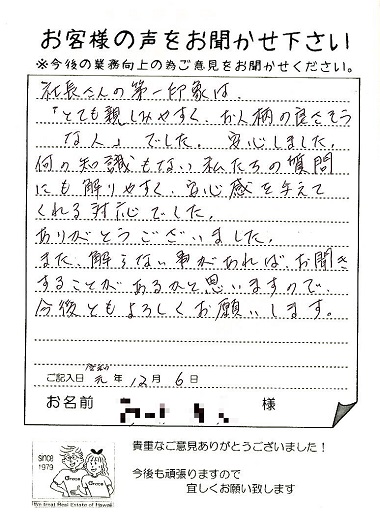 お客様の声をお聞かせ下さい
※今後の業務向上の為ご意見をお聞かせください。
社長さんの第一印象は、
「とても親しみやすく、お人柄の良さそう
な人」でした。 安心しました。
何の知識もない私たちの質問
にも解りやすく、安心感を与えて
くれる対応でした。
ありがとうございました。
また、解らない事があれば、お聞き
することがあるかと思いますので、
今後ともよろしくお願いします。
ご記入日 元年 12月 6日
お名前 様
since
1979
Grace
Grace
We treat Real Estate of Hawaii
貴重なご意見ありがとうございました！
今後も頑張りますので
宜しくお願い致します